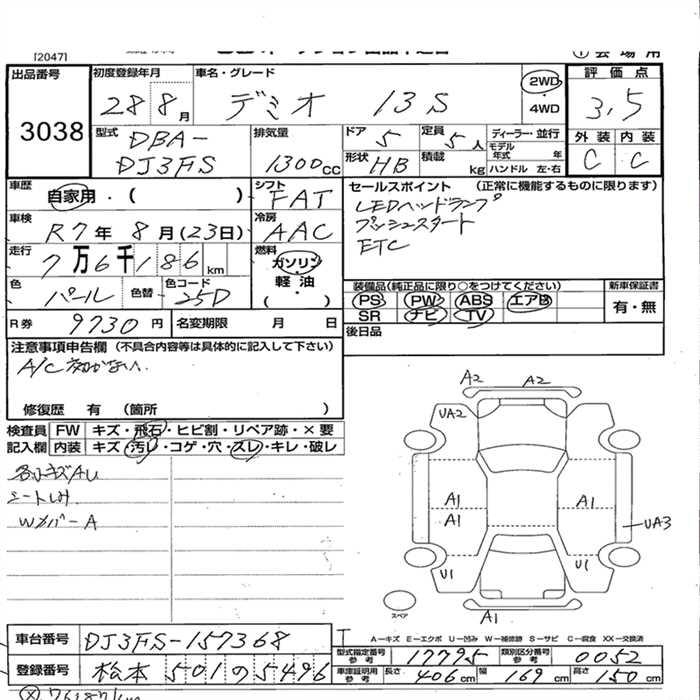 [2047]
① 会場用
出品番号 3038
初度登録年月 28 8月
車名・グレード デミオ 13S
2WD・4WD
評価点 3.5
外装 C 内装 C
型式 DBA-DJ3FS
排気量 1300cc
ドア 5 定員 5人
形状 HB 積載 kg
ディーラー・並行
モデル年式 年
ハンドル 左・右
車歴 自家用・( )
シフト FAT
車検 R7年8月(23日)
冷房 AAC
走行 7万6千186km
燃料 ガソリン・軽油・( )
色 パール 色替 色コード 25D
R券 9730円 名変期限 月 日
セールスポイント (正常に機能するものに限ります)
LEDヘッドランプ
プッシュスタート
ETC
装備品(純正品に限り○をつけてください)
PS PW ABS エアB
SR ナビ TV
新車保証書 有・無
後日品
注意事項申告欄 (不具合内容等は具体的に記入して下さい)
修復歴 有 (箇所 )
検査員記入欄
FW キズ・飛石・ヒビ割・リペア跡・×要
内装 キズ・汚レ・コゲ・穴・スレ・キレ・破レ
各所キズAU
シートしみ
Wカバー A
A2 A2
UA2
A1 A1
A1
UA3
U1 U1
A1
スペア
A−キズ E−エクボ U−凹み W−補修跡 S−サビ C−腐食 XX−交換済
車台番号 DJ3FS-157368
登録番号 松本 501 の 5496
型式指定番号 参考 17795 類別区分番号 参考 0052
車庫証明用 参考 長さ 406cm 幅 169cm 高さ 150cm